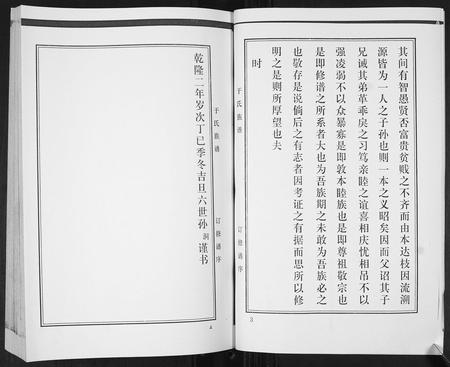 其间有智愚贤否富贵贫贱之不齐而由本达枝因流溯
源皆为一人之子孙也则一本之义昭矣因而父诏其子
兄诫其弟革乖戾之习笃亲睦之谊喜相庆忧相吊不以
强凌弱不以众暴寡是即敦本睦族也是即尊祖敬宗也
是即修谱之所系者大也为吾族期之未敢为吾族必之
也敬存是说倘后之有志者因考证之有据而思所以修
明之是则所厚望也夫
时
于氏族谱
订修谱序
3
于氏族谱
订修谱序
乾隆二年岁次丁巳季冬吉旦六世孙 谨书
4